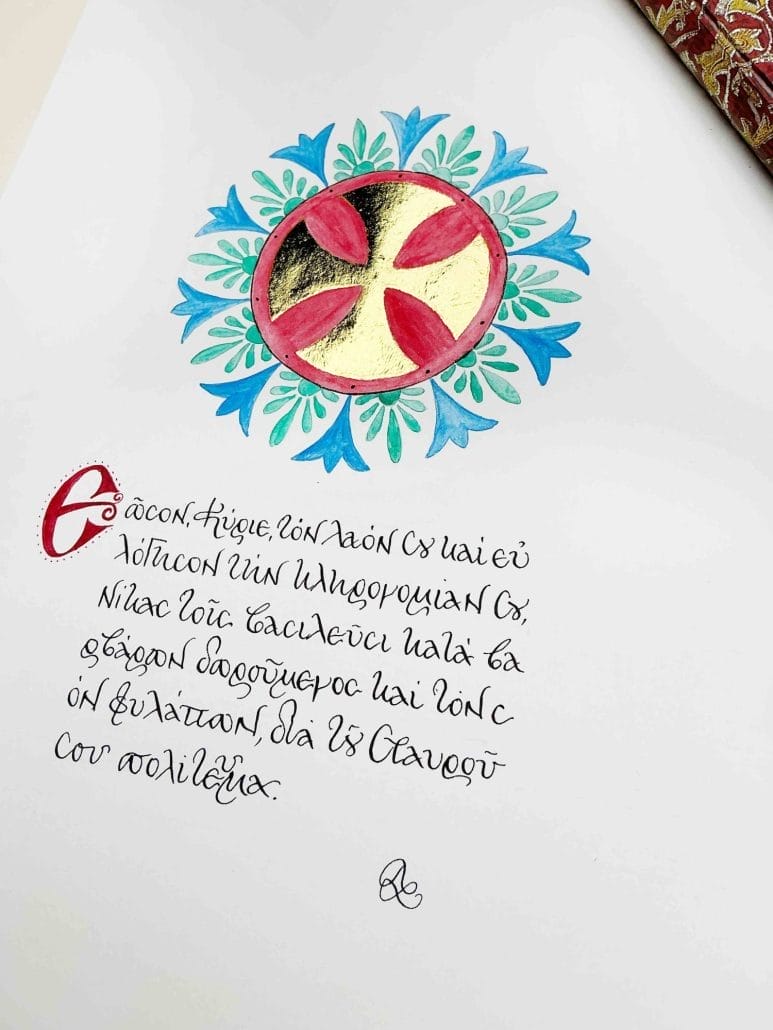 Σῶσον, Κύριε, τὸν λαόν σȣ καὶ εὐ
λόγησον τὴν κληρονομίαν σȣ,
νίκας τοῖς βασιλεῦσι κατὰ βα
ρβάρων δωρούμενος καὶ τὸν σ
ὸν φυλάττων, διὰ τȣ͂ Σταυροῦ
σου πολίτευμα.